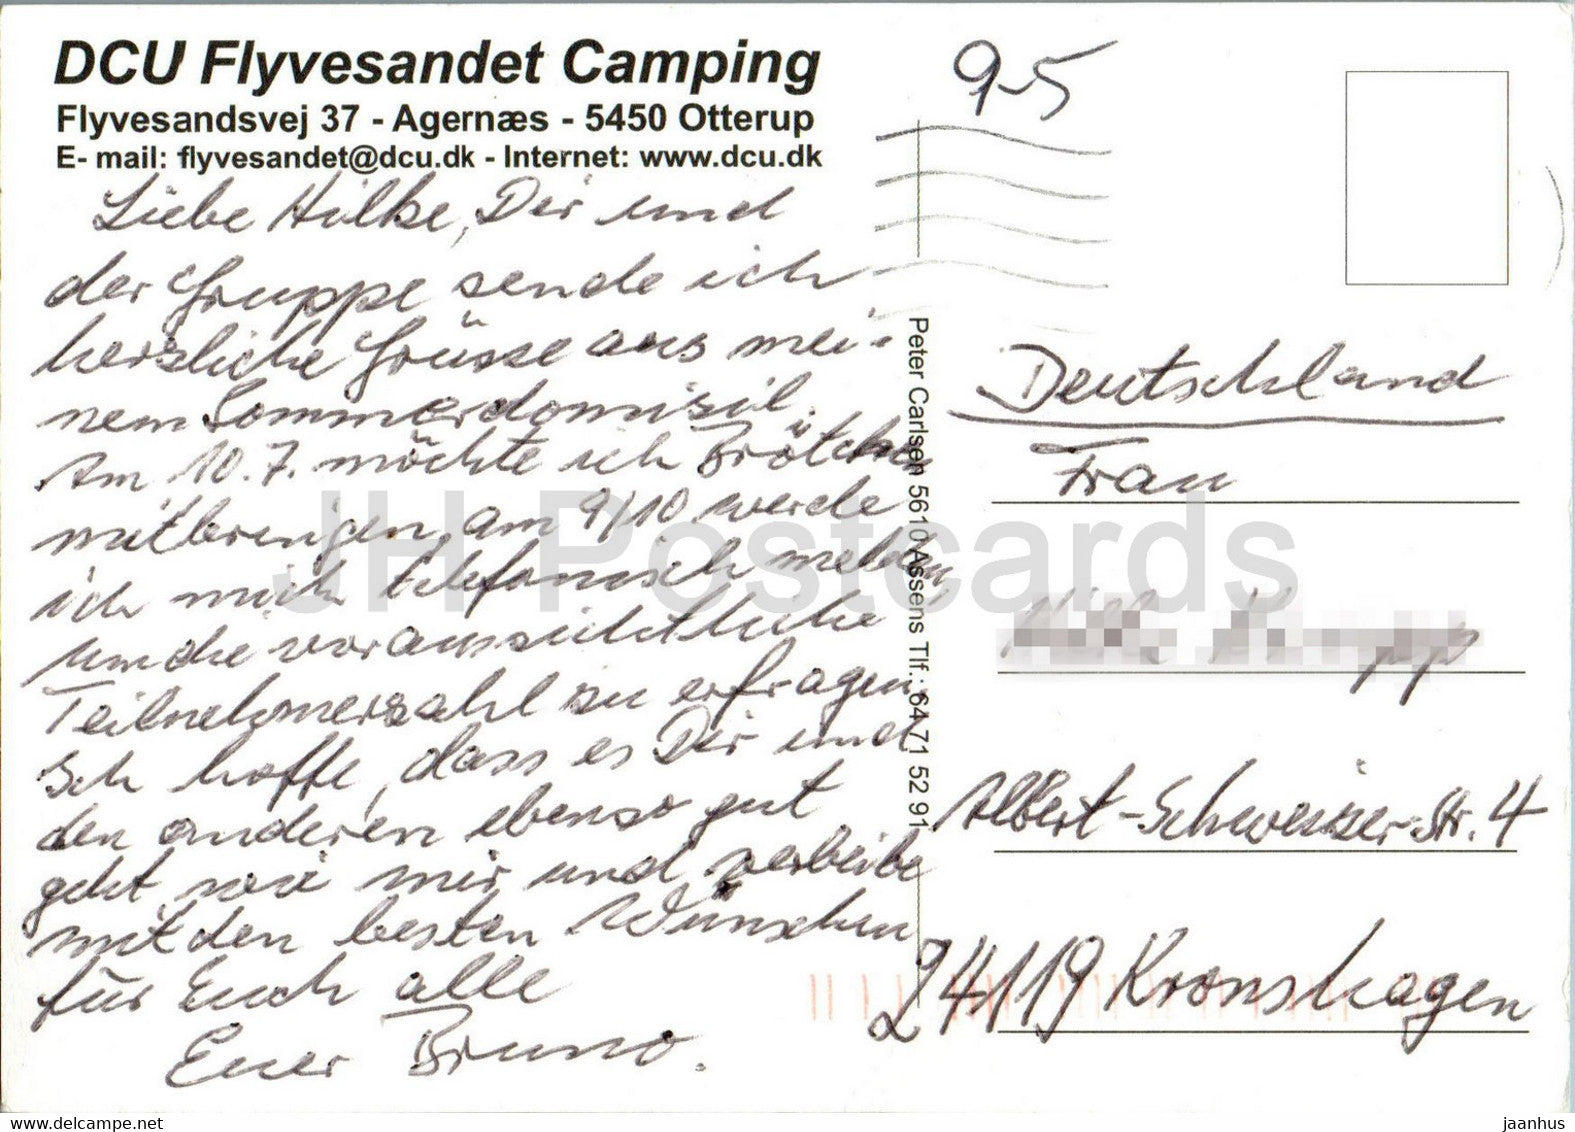 DCU Flyvesandet Camping
Flyvesandsvej 37 - Agernæs - 5450 Otterup
E- mail: flyvesandet@dcu.dk - Internet: www.dcu.dk
Liebe Hilke, Dir und
der Gruppe sende ich
herzliche Grüsse aus mei-
nem Sommerdomizil.
Am 10.7. möchte ich Brötchen
mitbringen, am 9/10 werde
ich mich telefonisch melden
um die voraussichtliche
Teilnehmerzahl zu erfragen.
Ich hoffe, dass es Dir und
den anderen ebenso gut
geht wie mir und verbleibe
mit den besten Wünschen
für Euch alle
Euer Bruno.
9-5
Peter Carlsen 5610 Assens Tlf.: 64 71 52 91
Deutschland
Frau
Albert-Schweitzer-Str. 4
24119 Kronshagen
JH Postcards
jaanhus